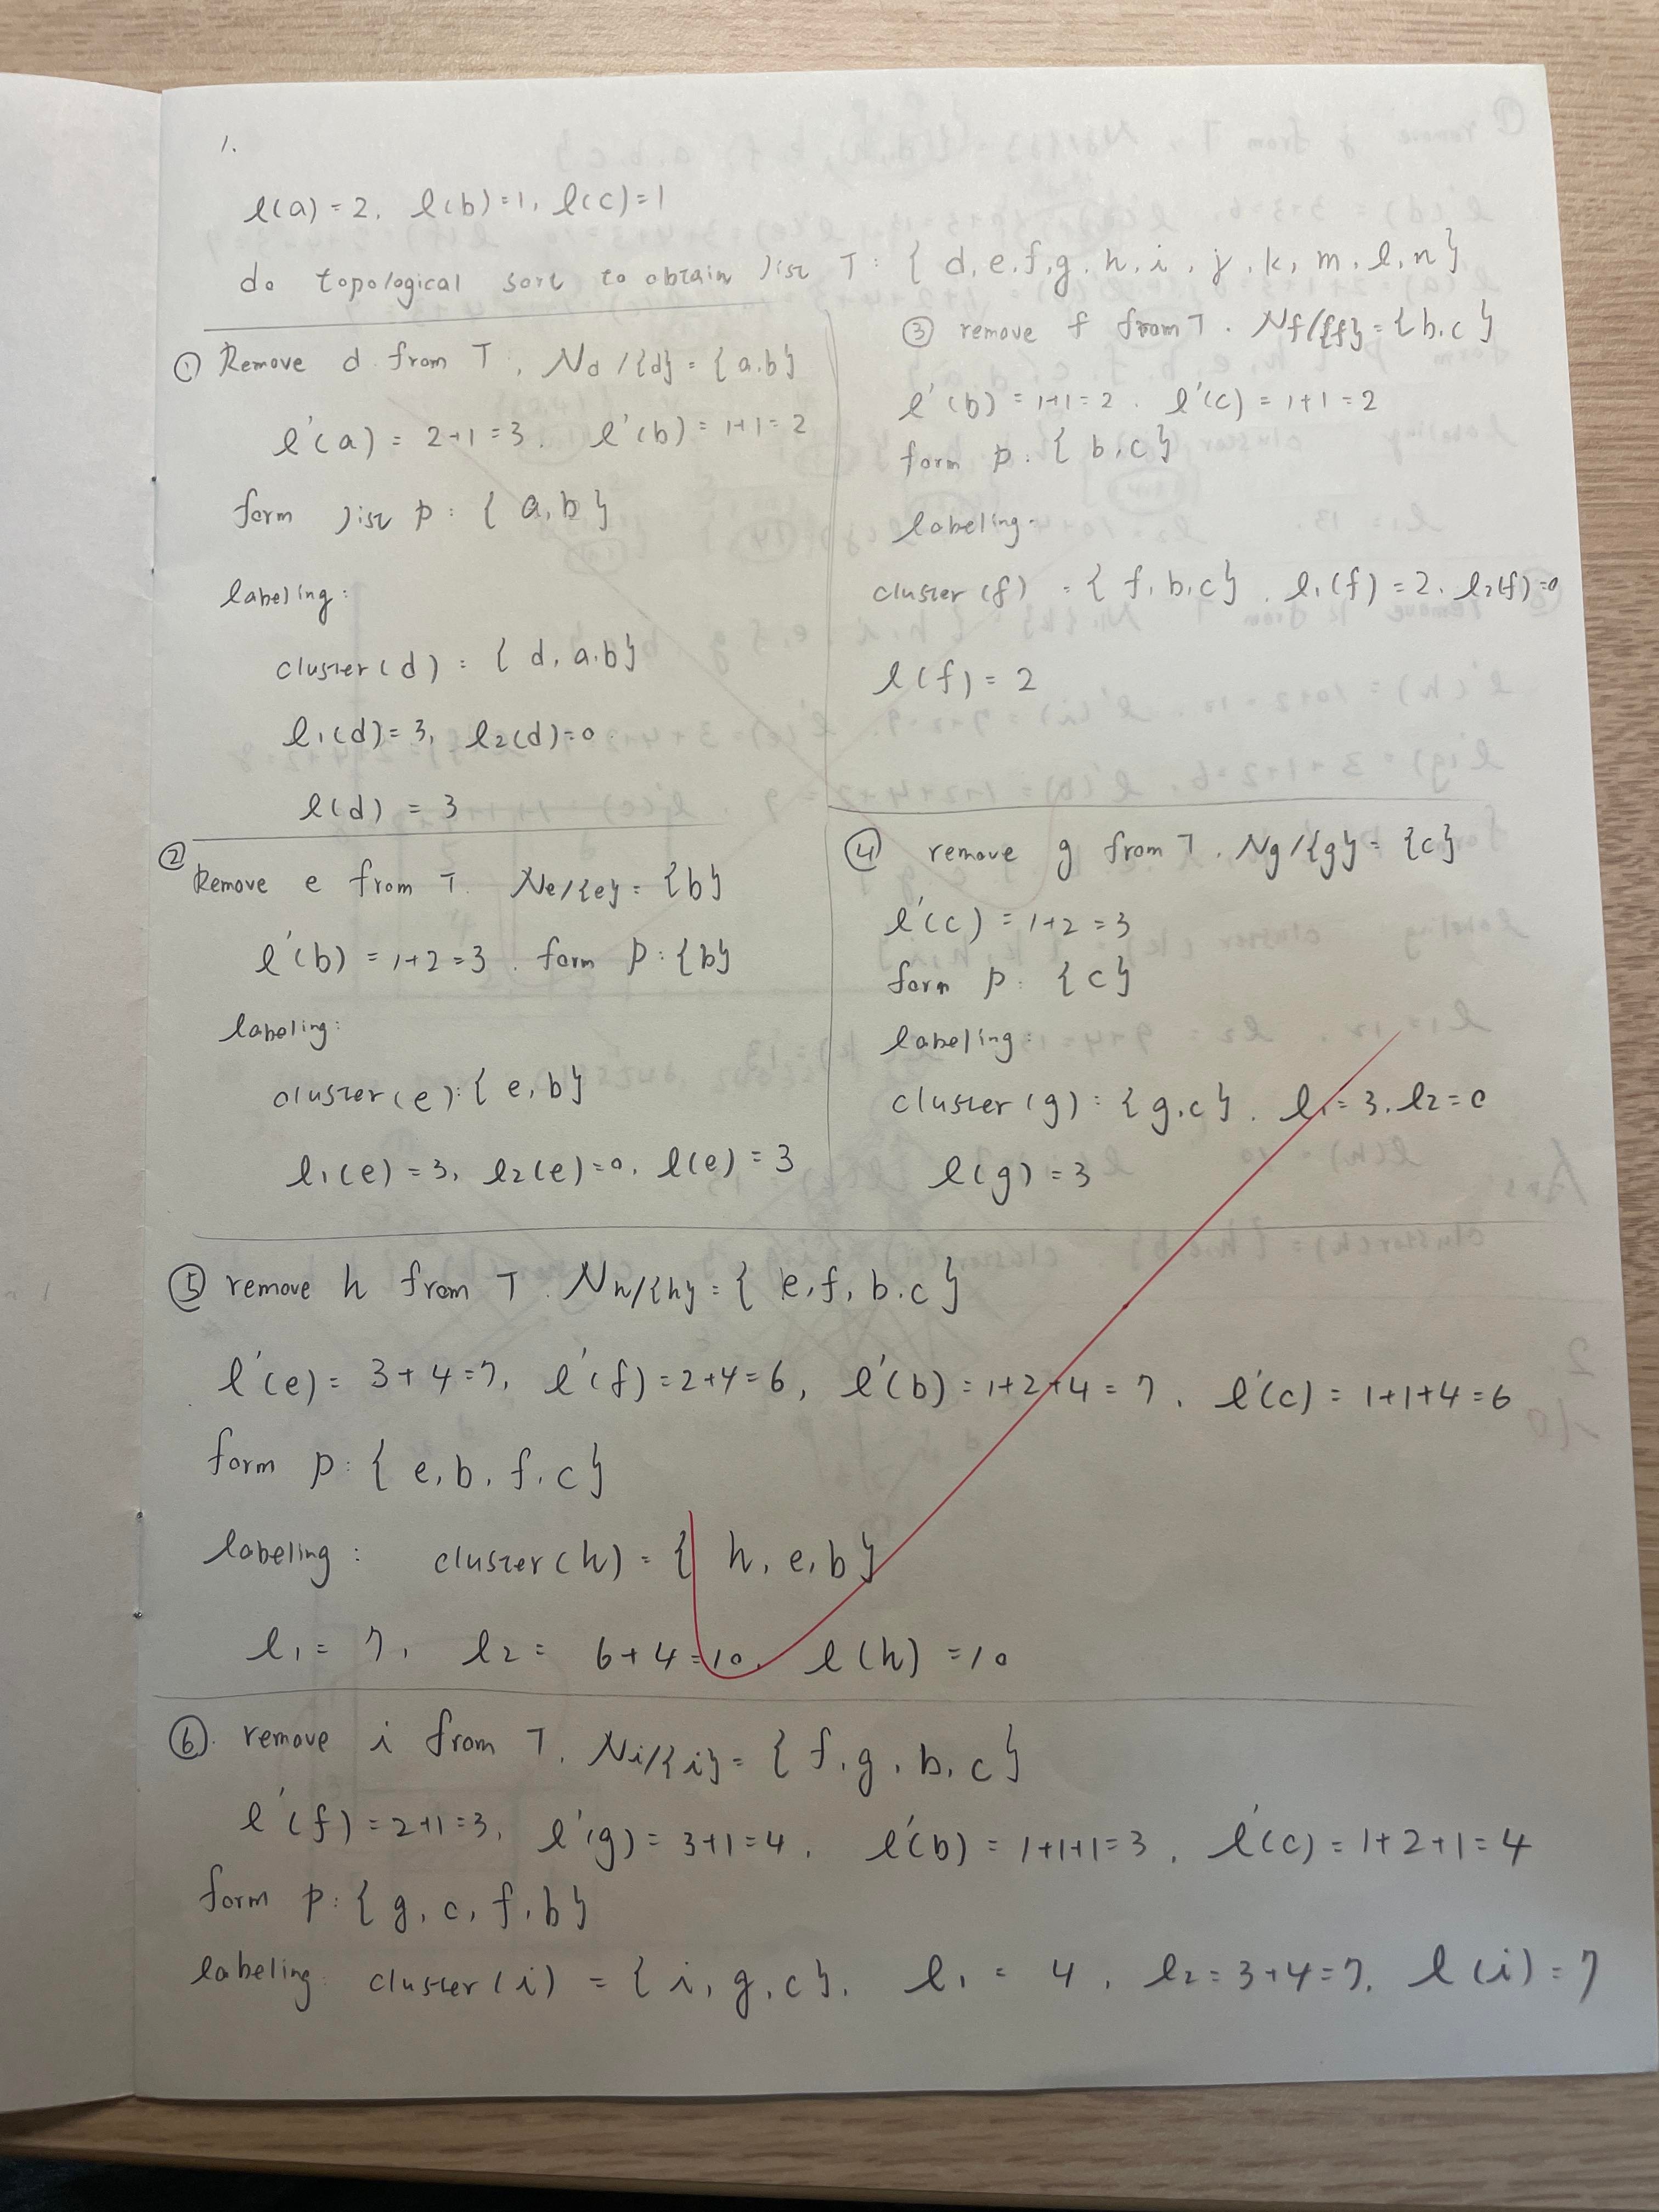 1.
l(a) = 2, l(b) = 1, l(c) = 1
do topological sort to obtain list T: { d, e, f, g, h, i, j, k, m, l, n }
① Remove d from T, Nd/{d} = { a, b }
l'(a) = 2+1 = 3. l'(b) = 1+1 = 2
form list p: { a, b }
labeling:
cluster(d) = { d, a, b }
l1(d) = 3, l2(d) = 0.
l(d) = 3
② Remove e from T. Ne/{e} = {b}
l'(b) = 1+2 = 3. form p: {b}
labeling:
cluster(e): { e, b }
l1(e) = 3, l2(e) = 0, l(e) = 3
③ remove f from T. Nf/{f} = { b, c }
l'(b) = 1+1 = 2. l'(c) = 1+1 = 2
form p: { b, c }
labeling:
cluster(f) = { f, b, c }. l1(f) = 2. l2(f) = 0
l(f) = 2
④ remove g from T. Ng/{g} = {c}
l'(c) = 1+2 = 3
form p: { c }
labeling:
cluster(g) = { g, c }. l1 = 3. l2 = 0
l(g) = 3
⑤ remove h from T. Nh/{h} = { e, f, b, c }
l'(e) = 3+4 = 7, l'(f) = 2+4 = 6, l'(b) = 1+2+4 = 7. l'(c) = 1+1+4 = 6
form p: { e, b, f, c }
labeling: cluster(h) = { h, e, b }
l1 = 7, l2 = 6+4 = 10. l(h) = 10
⑥. remove i from T. Ni/{i} = { f, g, b, c }
l'(f) = 2+1 = 3, l'(g) = 3+1 = 4. l'(b) = 1+1+1 = 3. l'(c) = 1+2+1 = 4
form p: { g, c, f, b }
labeling: cluster(i) = { i, g, c }. l1 = 4. l2 = 3+4 = 7. l(i) = 7